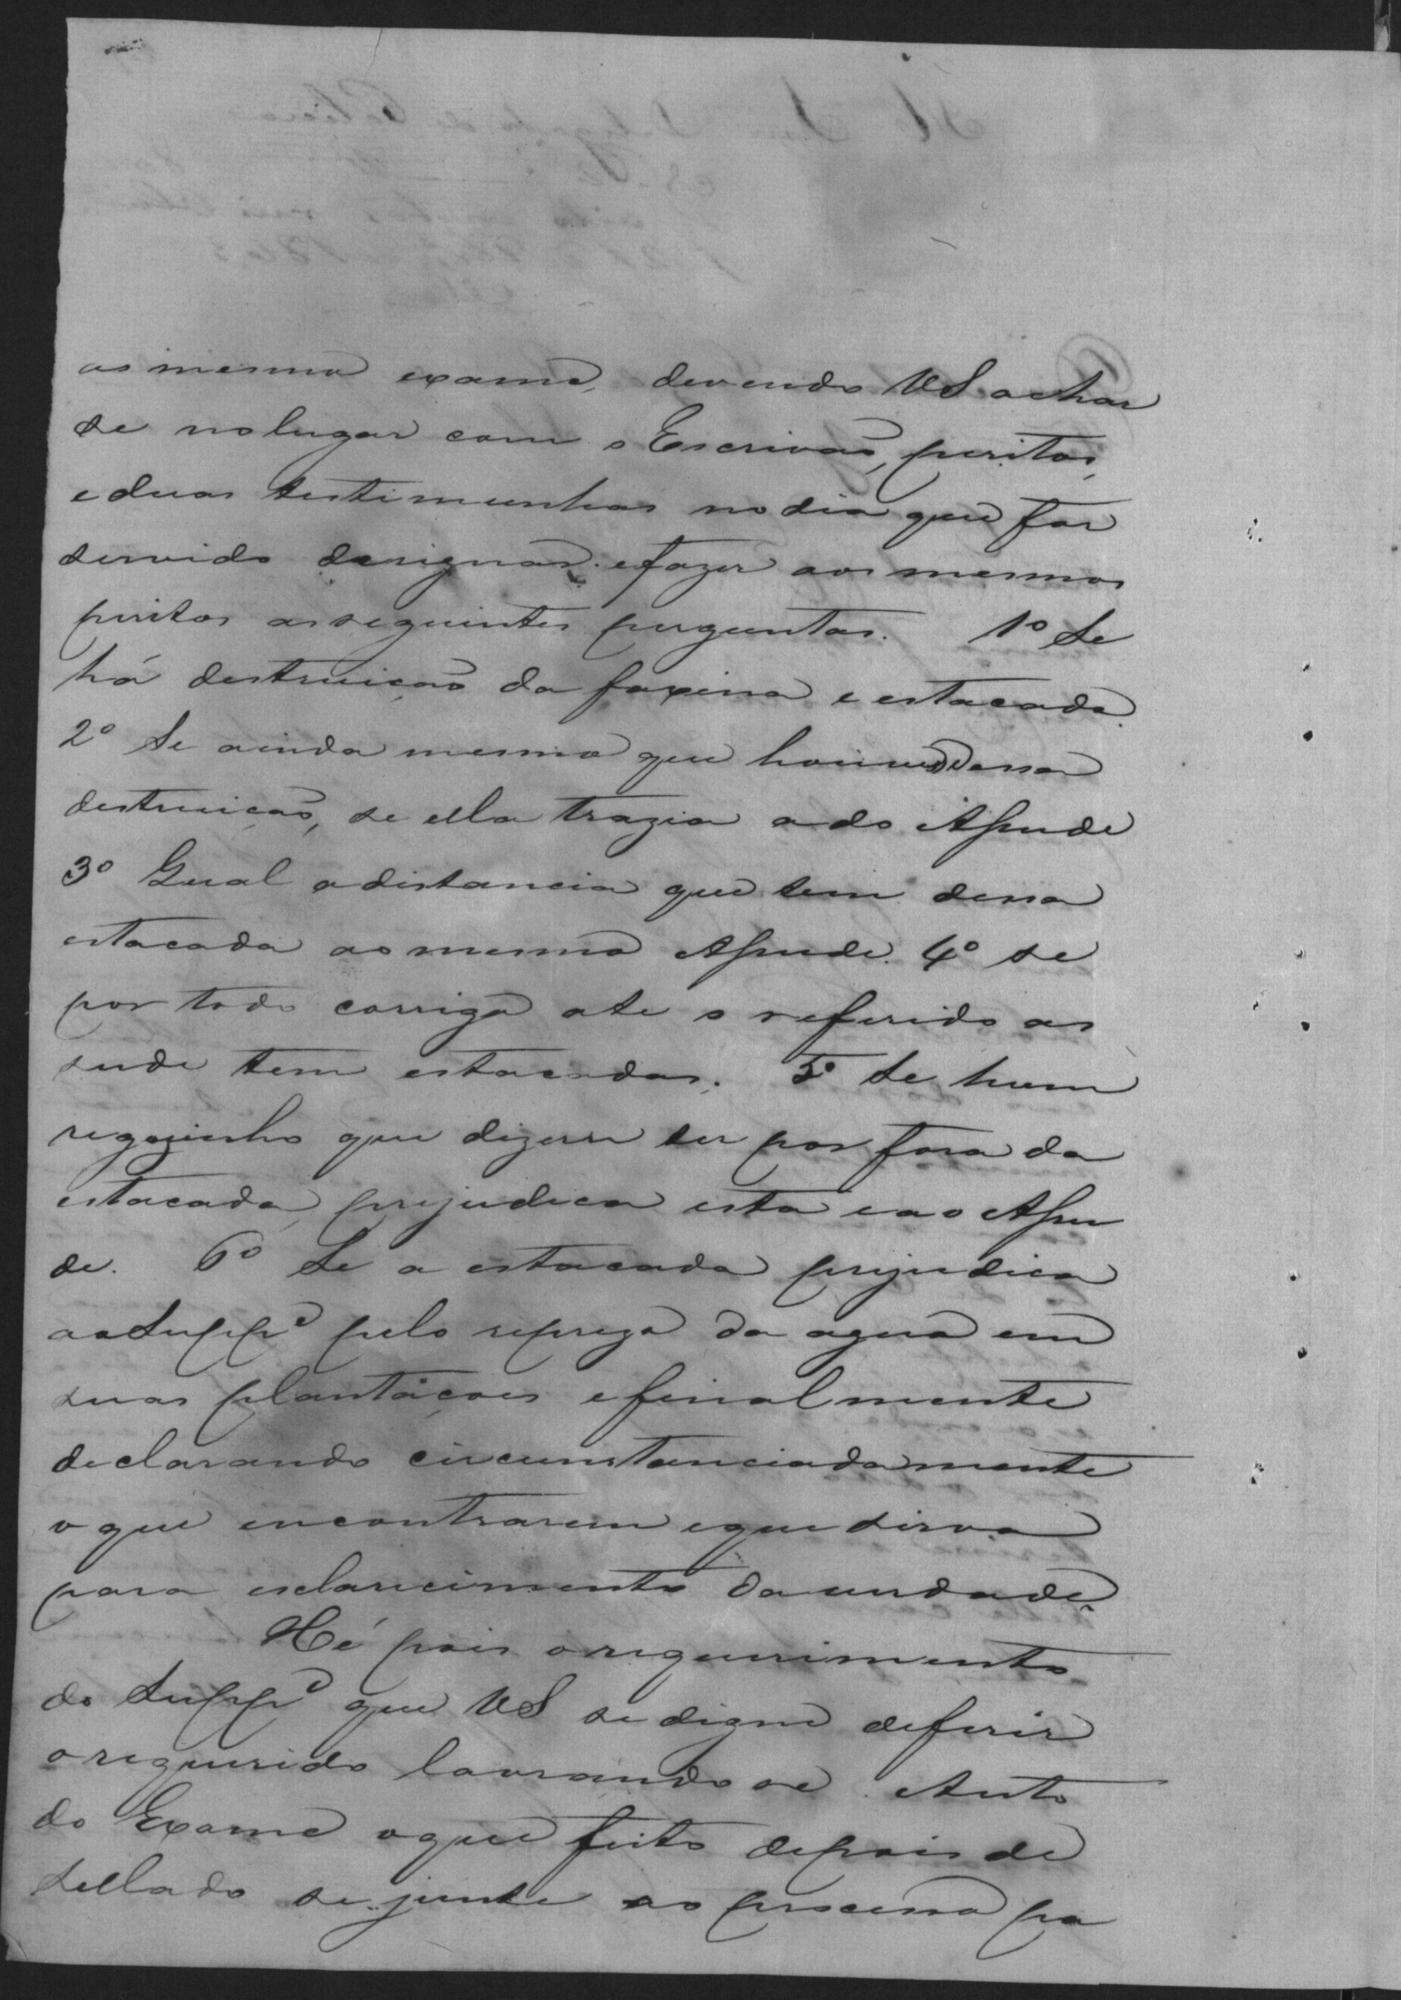 ao mesmo exame, devendo VS achar
se no lugar com o Escrivaõ, peritos,
e duas testimunhas no dia que for
servido designar. e fazer aos mesmos
peritos as seguintes perguntas. 1º Se
há destruiçaõ da faxina e estacada.
2º Se ainda mesmo que houvesse essa
destruiçaõ, se ella trazia a do Assude
3º Qual a distancia que tem dessa
estacada ao mesmo Assude. 4º se
por todo corrigo ate o referido as
sude tem estacadas. 5º Se hum
regozinho que dizem ser por fora da
estacada, prejudica esta e ao Assu
de. 6º Se a estacada prejudica
ao Suppe pelo repreza da agua em
suas plantaçoes e finalmente
declarando circumstanciadamente
o que encontrarem e que sirva
para esclarecimento da verdade.
Hé pois o requerimento
do Suppe que VS se digne deferir
o requerido lavrando se Auto
do Exame o que feito depois de
sellado se junte ao processo pa